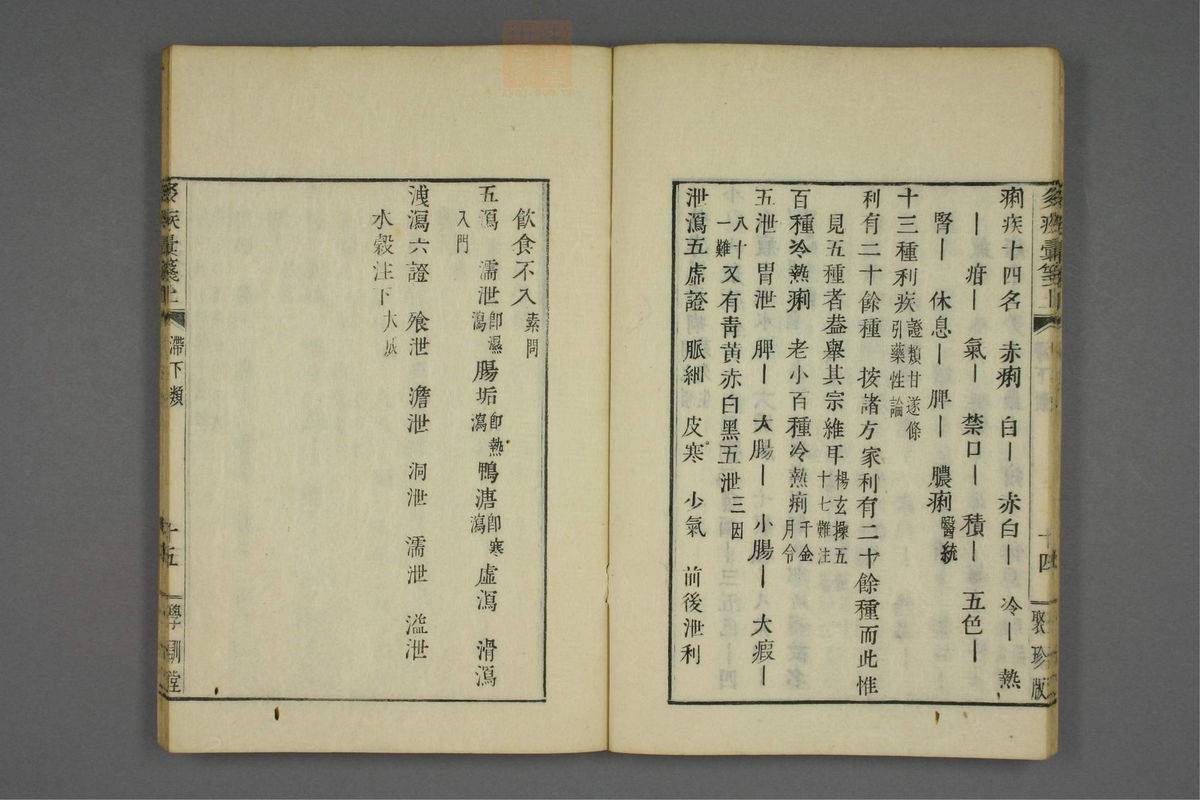 痢疾十四名　赤痢　白｜　赤白｜　冷｜　熱
｜　疳｜　氣｜　禁口｜　積｜　五色｜
腎｜　休息｜　脾｜　膿痢 醫統
十三種利疾 證類甘遂條引藥性論
利有二十餘種　按諸方家利有二十餘種而此惟
見五種者葢舉其宗維耳 楊玄操五十七難注
百種冷熱痢　老小百種冷熱痢 千金月令
五泄　胃泄　脾｜　大腸｜　小腸｜　大瘕｜
八十一難 又有靑黃赤白黑五泄 三因
泄瀉五虛證　脈細　皮寒　少氣　前後泄利
十四
聚珍版
飮食不入 素問
五瀉　濡泄 卽濕瀉 腸垢 卽熱瀉 鴨溏 卽寒瀉 虛瀉　滑瀉
入門
洩瀉六證　飱泄　澹泄　洞泄　濡泄　溢泄
水穀注下 大成
滯下類
十五
學訓堂